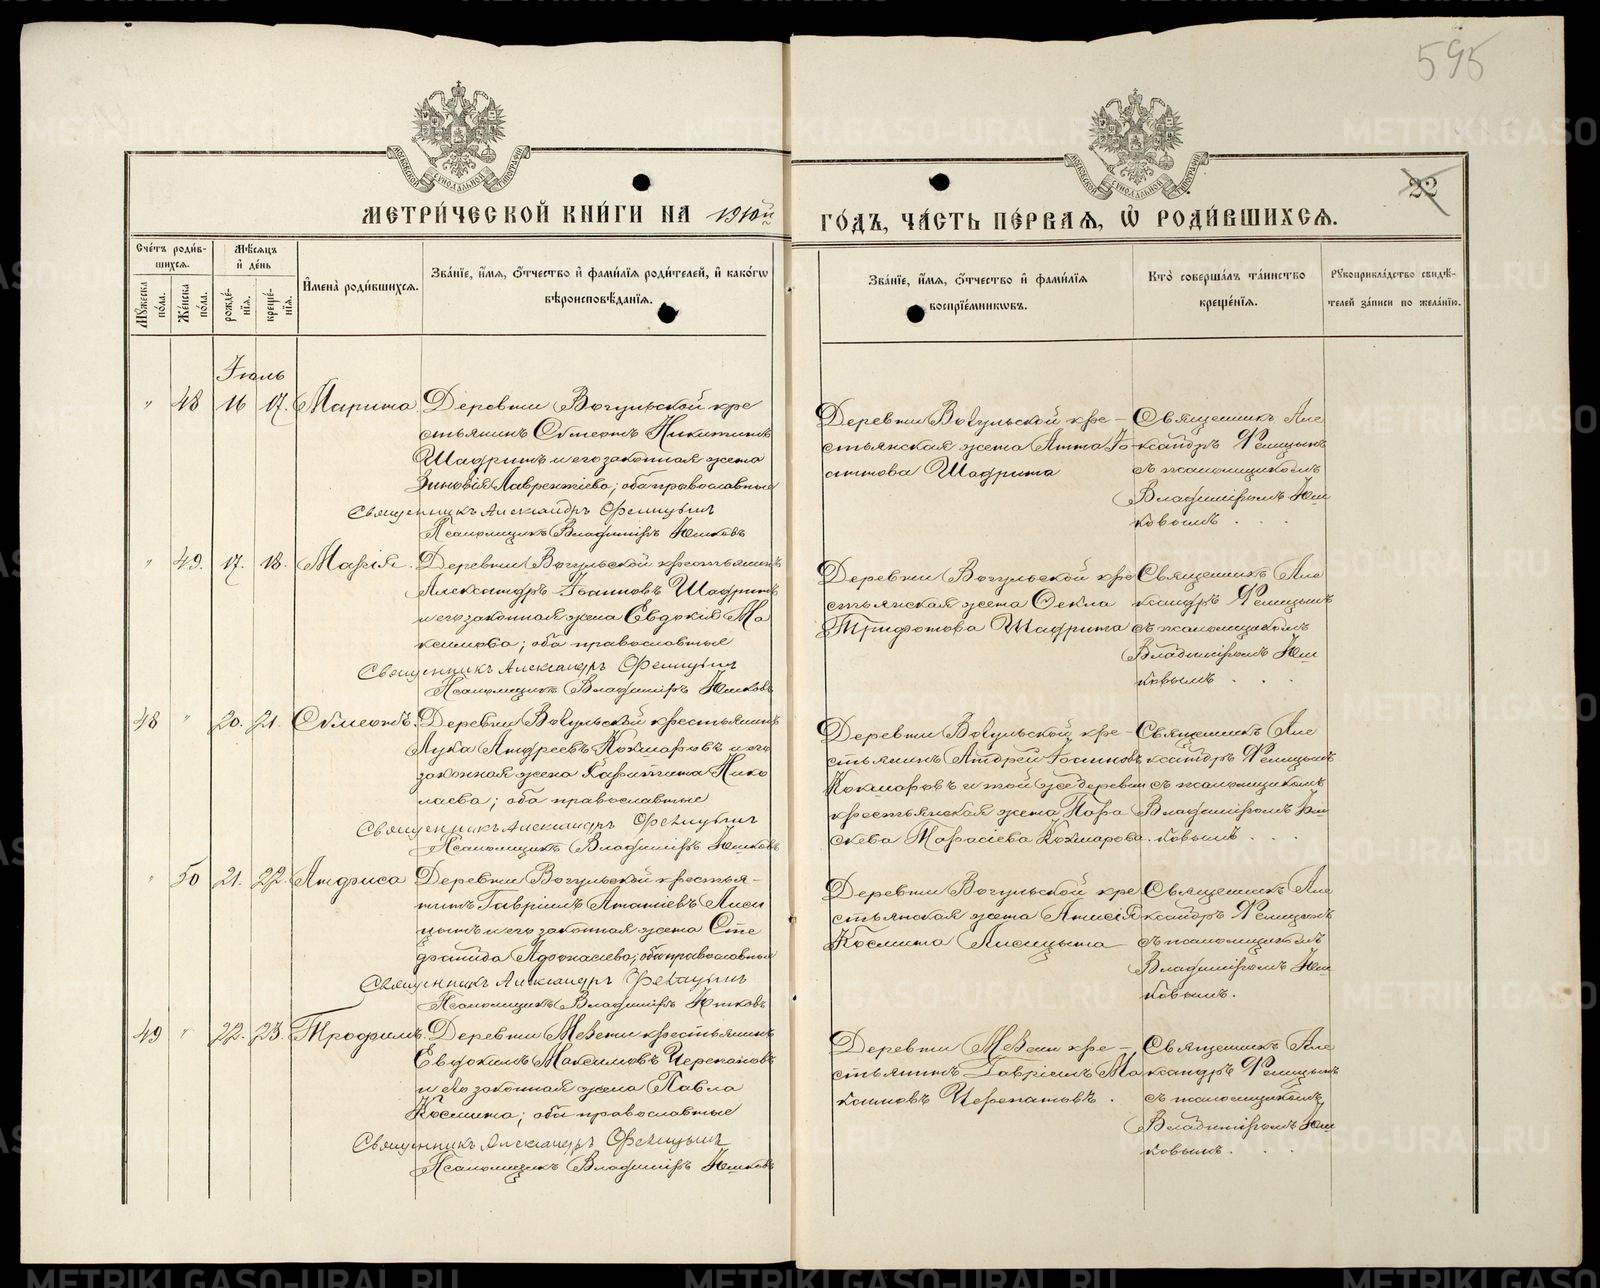 595
МОСКОВСКОЙ СѴНОДАЛЬНОЙ ТИПОГРАФІИ
МОСКОВСКОЙ СѴНОДАЛЬНОЙ ТИПОГРАФІИ
22
МЕТРИ́ЧЕСКОЙ КНИ́ГИ НА 1910й
ГО́ДЪ, ЧА́СТЬ ПЕ́РВАѦ, Ѽ РОДИ́ВШИХСѦ.
Счетъ роди́в-
шихсѧ.
Мꙋжеска по́ла.
Же́нска по́ла.
Мѣ́сѧцъ
и де́нь
рожде́-
нїѧ.
креще́-
нїѧ.
И҆мена̀ роди́вшихсѧ.
Зва́нїе, и҆́мѧ, ѻ҆́тчество и҆ фами́лїѧ роди́телей, и҆ како́гѡ
вѣроисповѣ́данїѧ.
Зва́нїе, и҆́мѧ, ѻ҆́тчество и҆ фами́лїѧ
воспрїе́мникѡвъ.
Кто̀ соверша́лъ та́инство
креще́нїѧ.
Рꙋкоприкла́дство свидѣ́-
телей за́писи по жела́нїю.
Іюль
" 48 16 17. Марина. Деревни Вогульской кре
стьянинъ Симеонъ Никитинъ
Шадринъ и его законная жена
Зиновія Лаврентіева; оба православные
Священникъ Александръ Феницынъ
Псаломщикъ Владиміръ Юшковъ
Деревни Вогульской кре-
стьянская жена Анна Іо
аннова Шадрина
Священникъ Але
ксандръ Феницынъ
съ псаломщикомъ
Владиміромъ Юш
ковымъ . . .
" 49. 17. 18. Марія. Деревни Вогульской крестьянинъ
Александръ Іоанновъ Шадринъ
и его законная жена Евдокія Ма
ксимова; оба православные
Священникъ Александръ Феницынъ
Псаломщикъ Владиміръ Юшковъ
Деревни Вогульской кре
стьянская жена Ѳекла
Трифонова Шадрина
Священникъ Але
ксандръ Феницынъ
съ псаломщикомъ
Владиміромъ Юш
ковымъ . . .
48 " 20. 21. Симеонъ. Деревни Вогульской крестьянинъ
Лука Андреевъ Кокшаровъ и его
законная жена Капитолина Нико
лаева; оба православные
Священникъ Александръ Феницынъ
Псаломщикъ Владиміръ Юшковъ
Деревни Вогульской кре-
стьянинъ Андрей Іоанновъ
Кокшаровъ и той же деревни
крестьянская жена Пара
скева Тарасіева Кокшарова.
Священникъ Але
ксандръ Феницынъ
съ псаломщикомъ
Владиміромъ Юш
ковымъ . . .
" 50 21. 22. Анфиса Деревни Вогульской крестья-
нинъ Гавріилъ Ананіевъ Лиси
цынъ и его законная жена Сте
фанида Афонасіева; оба православные
Священникъ Александръ Феницынъ
Псаломщикъ Владиміръ Юшковъ
Деревни Вогульской кре
стьянская жена Анисія
Космина Лисицына
Священникъ Але
ксандръ Феницынъ
съ псаломщикомъ
Владиміромъ Юш
ковымъ.
49 " 22. 23. Трофимъ. Деревни Мѣзени крестьянинъ
Евдокимъ Максимовъ Черепановъ
и его законная жена Павла
Космина; оба православные
Священникъ Александръ Феницынъ
Псаломщикъ Владиміръ Юшковъ
Деревни Мѣзени кре-
стьянинъ Гавріилъ Ма
ксимовъ Черепановъ.
Священникъ Але
ксандръ Феницынъ
съ псаломщикомъ
Владиміромъ Юш
ковымъ . . .
METRIKI.GASO-URAL.RU